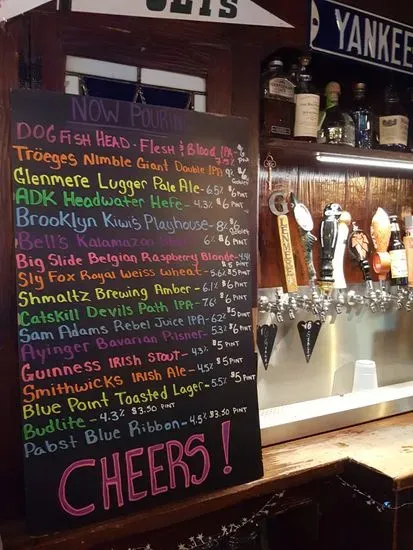 JETS
YANKEE
NOW POURING
DOGFISH HEAD - Flesh & Blood IPA 7.5%
Tröeges Nimble Giant Double IPA 9% $6
Glenmere Lugger Pale Ale - 6.5% $6 PINT
ADK Headwater Hefe - 4.3% $6 PINT
Brooklyn Kiwi's Playhouse - 8% $6 GOBLET
Bell's Kalamazoo 6% $6 PINT
Big Slide Belgian Raspberry Blonde
Sly Fox Royal Weiss Wheat - 5.6% $5 PINT
Shmaltz Brewing Amber - 6.1% $6 PINT
Catskill Devils Path IPA - 7.6 $6 PINT
Sam Adams Rebel Juice IPA - 6.2 $5 PINT
Ayinger Bavarian Pilsner - 5.3% $6 PINT
Guinness Irish Stout - 4.3% $5 PINT
Smithwicks Irish Ale - 4.5% $5 PINT
Blue Point Toasted Lager - 5.5% $5 PINT
Budlite - 4.3% $3.50 PINT
Pabst Blue Ribbon - 4.5% $3.50 PINT
CHEERS!